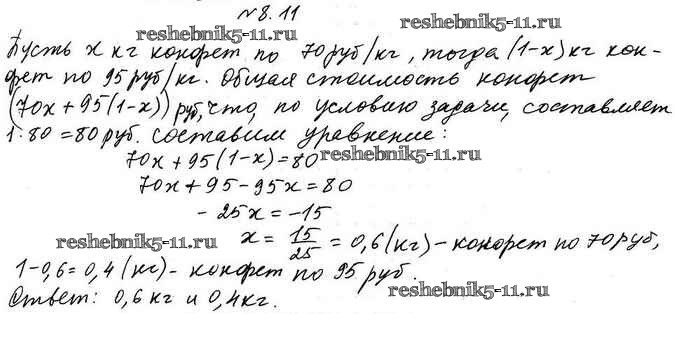 №8.11
reshebnik5-11.ru
Пусть x кг конфет по 70 руб/кг, тогда (1-x) кг кон-
фет по 95 руб/кг. Общая стоимость конфет
(70x + 95(1-x)) руб, что, по условию задачи, составляет
1·80 = 80 руб. составим уравнение:
70x + 95(1-x) = 80
reshebnik5-11.ru
70x + 95 - 95x = 80
- 25x = -15
reshebnik5-11.ru
x = 15/25 = 0,6 (кг) - конфет по 70 руб,
1-0,6 = 0,4 (кг) - конфет по 95 руб.
reshebnik5-11.ru
Ответ: 0,6 кг и 0,4 кг.